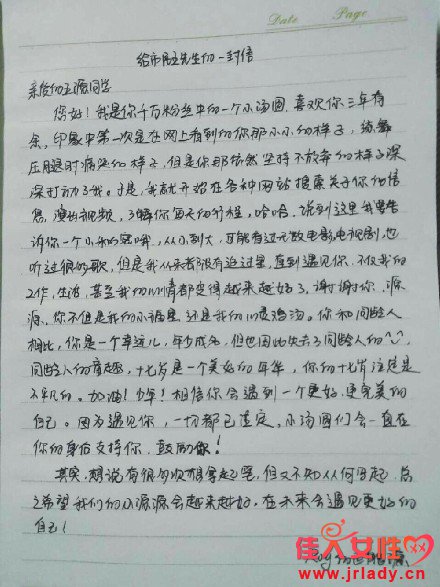 Date Page
给市民王先生的一封信
亲爱的王源同学
您好！我是你千万粉丝中的一个小汤圆，喜欢你三年有
余，印象中第一次是在网上看到的你那小小的样子，练舞
压腿时痛哭的样子，但是你那依然坚持不放弃的样子深
深打动了我。于是，我就开始在各种网站搜索关于你的信
息，演出视频，了解你每天的行程。哈哈，说到这里我要告
诉你一个小秘密哦，从小到大，可能看过无数电影电视剧也
听过很多歌，但是我从来都没有追过星，直到遇见你，不仅我的
工作，生活，甚至我的心情都变得越来越好了，谢谢你，源
源，你不但是我的小福星，还是我的心灵鸡汤。你和同龄人
相比，你是一个幸运儿，年少成名，但也因此失去了同龄人的
同龄人的童趣，十七岁是一个美好的年华，你的十七岁注定是
不平凡的。加油！少年！相信你会遇到一个更好，更完美的
自己。因为遇见你，一切都已注定。小汤圆们会一直在
你的身后支持你，鼓励你！
其实，想说有很多次想拿起笔，但又不知从何写起，总
之希望我们的小源源会越来越好，在未来会遇见更好的
自己！
Roy的
佳人女性网
www.jrlady.cn